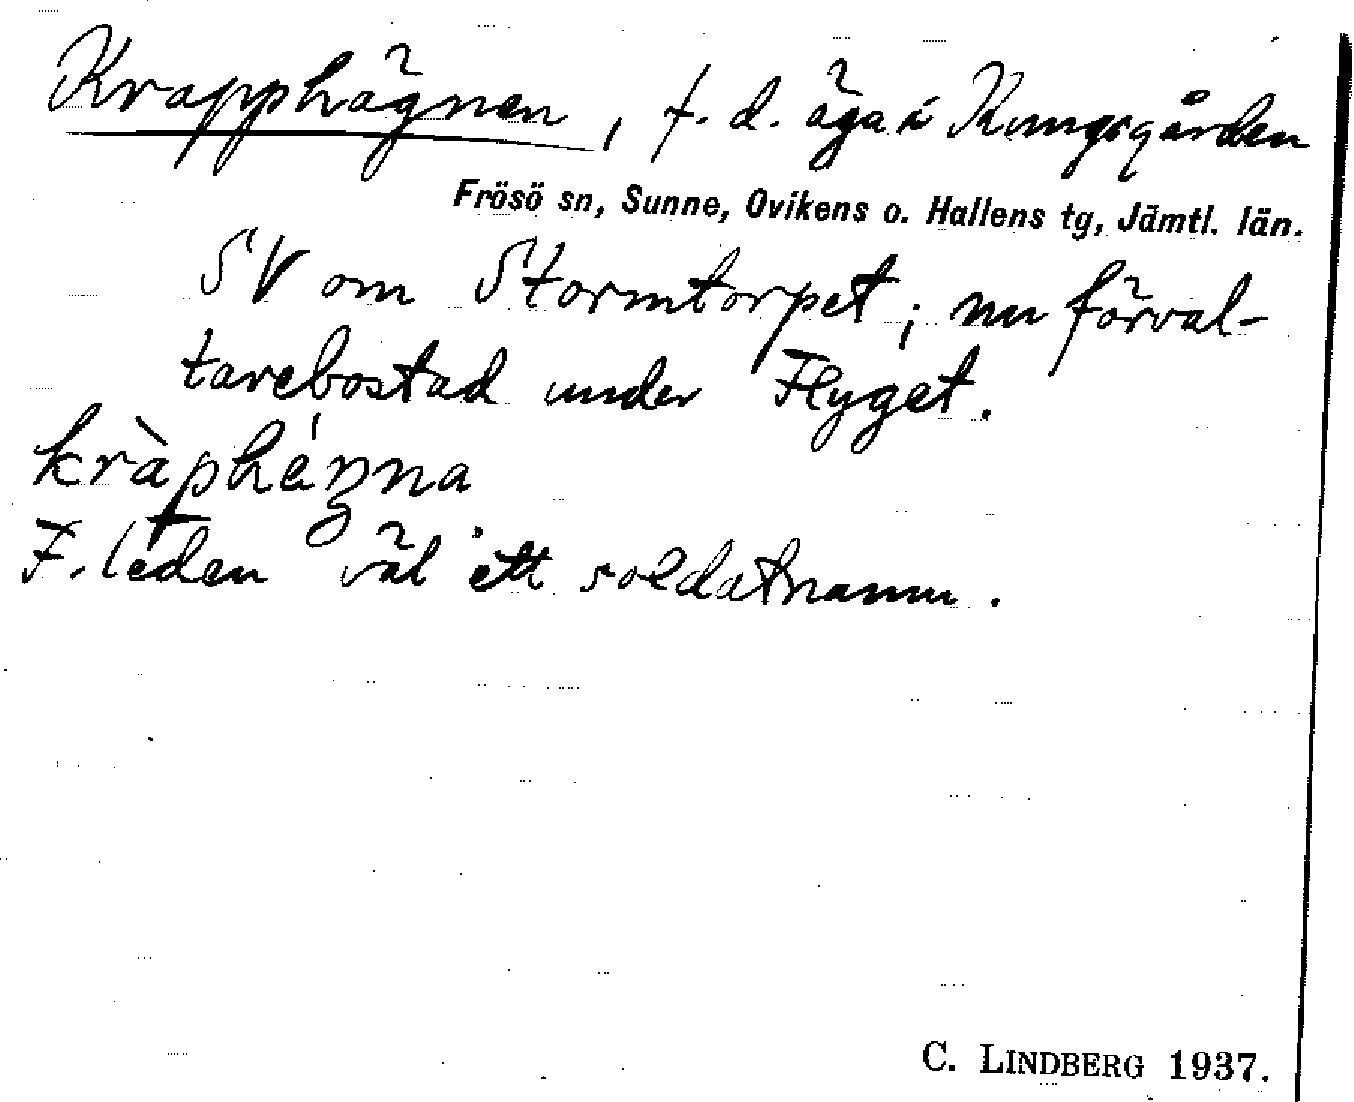 Krapphägnen, f.d. äga i Kungsgården
Frösö sn, Sunne, Ovikens o. Hallens tg, Jämtl. län.
SV om Stormtorpet; nu förval-
tarebostad under Flyget.
kràphéŋna
F. leden väl ett soldatnamn.
C. LINDBERG 1937.